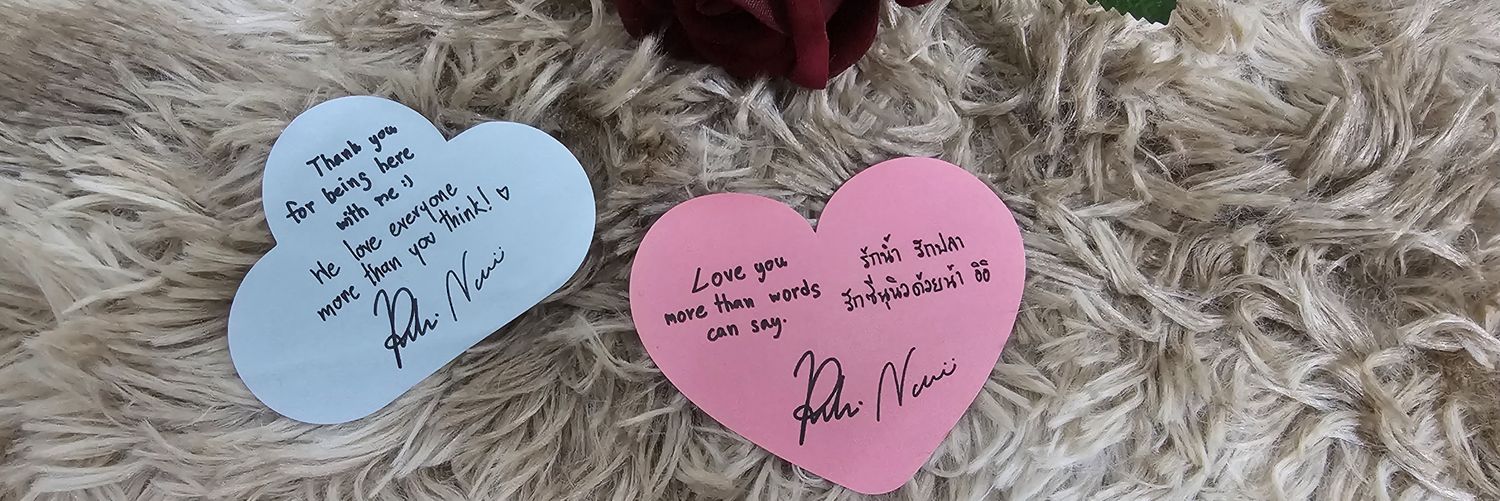 Thank you
for being here
with me :)
We love everyone
more than you think! ♡
Love you
more than words
can say.
รักน้ำ รักปลา
รักซีนุนิวด้วยน้า อิอิ